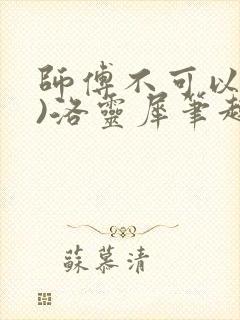 師傅不可以
)洛靈犀筆趣
蘇慕清